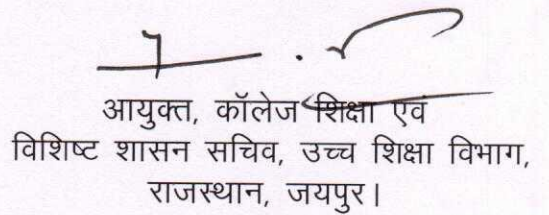 आयुक्त, कॉलेज शिक्षा एवं
विशिष्ट शासन सचिव, उच्च शिक्षा विभाग,
राजस्थान, जयपुर।